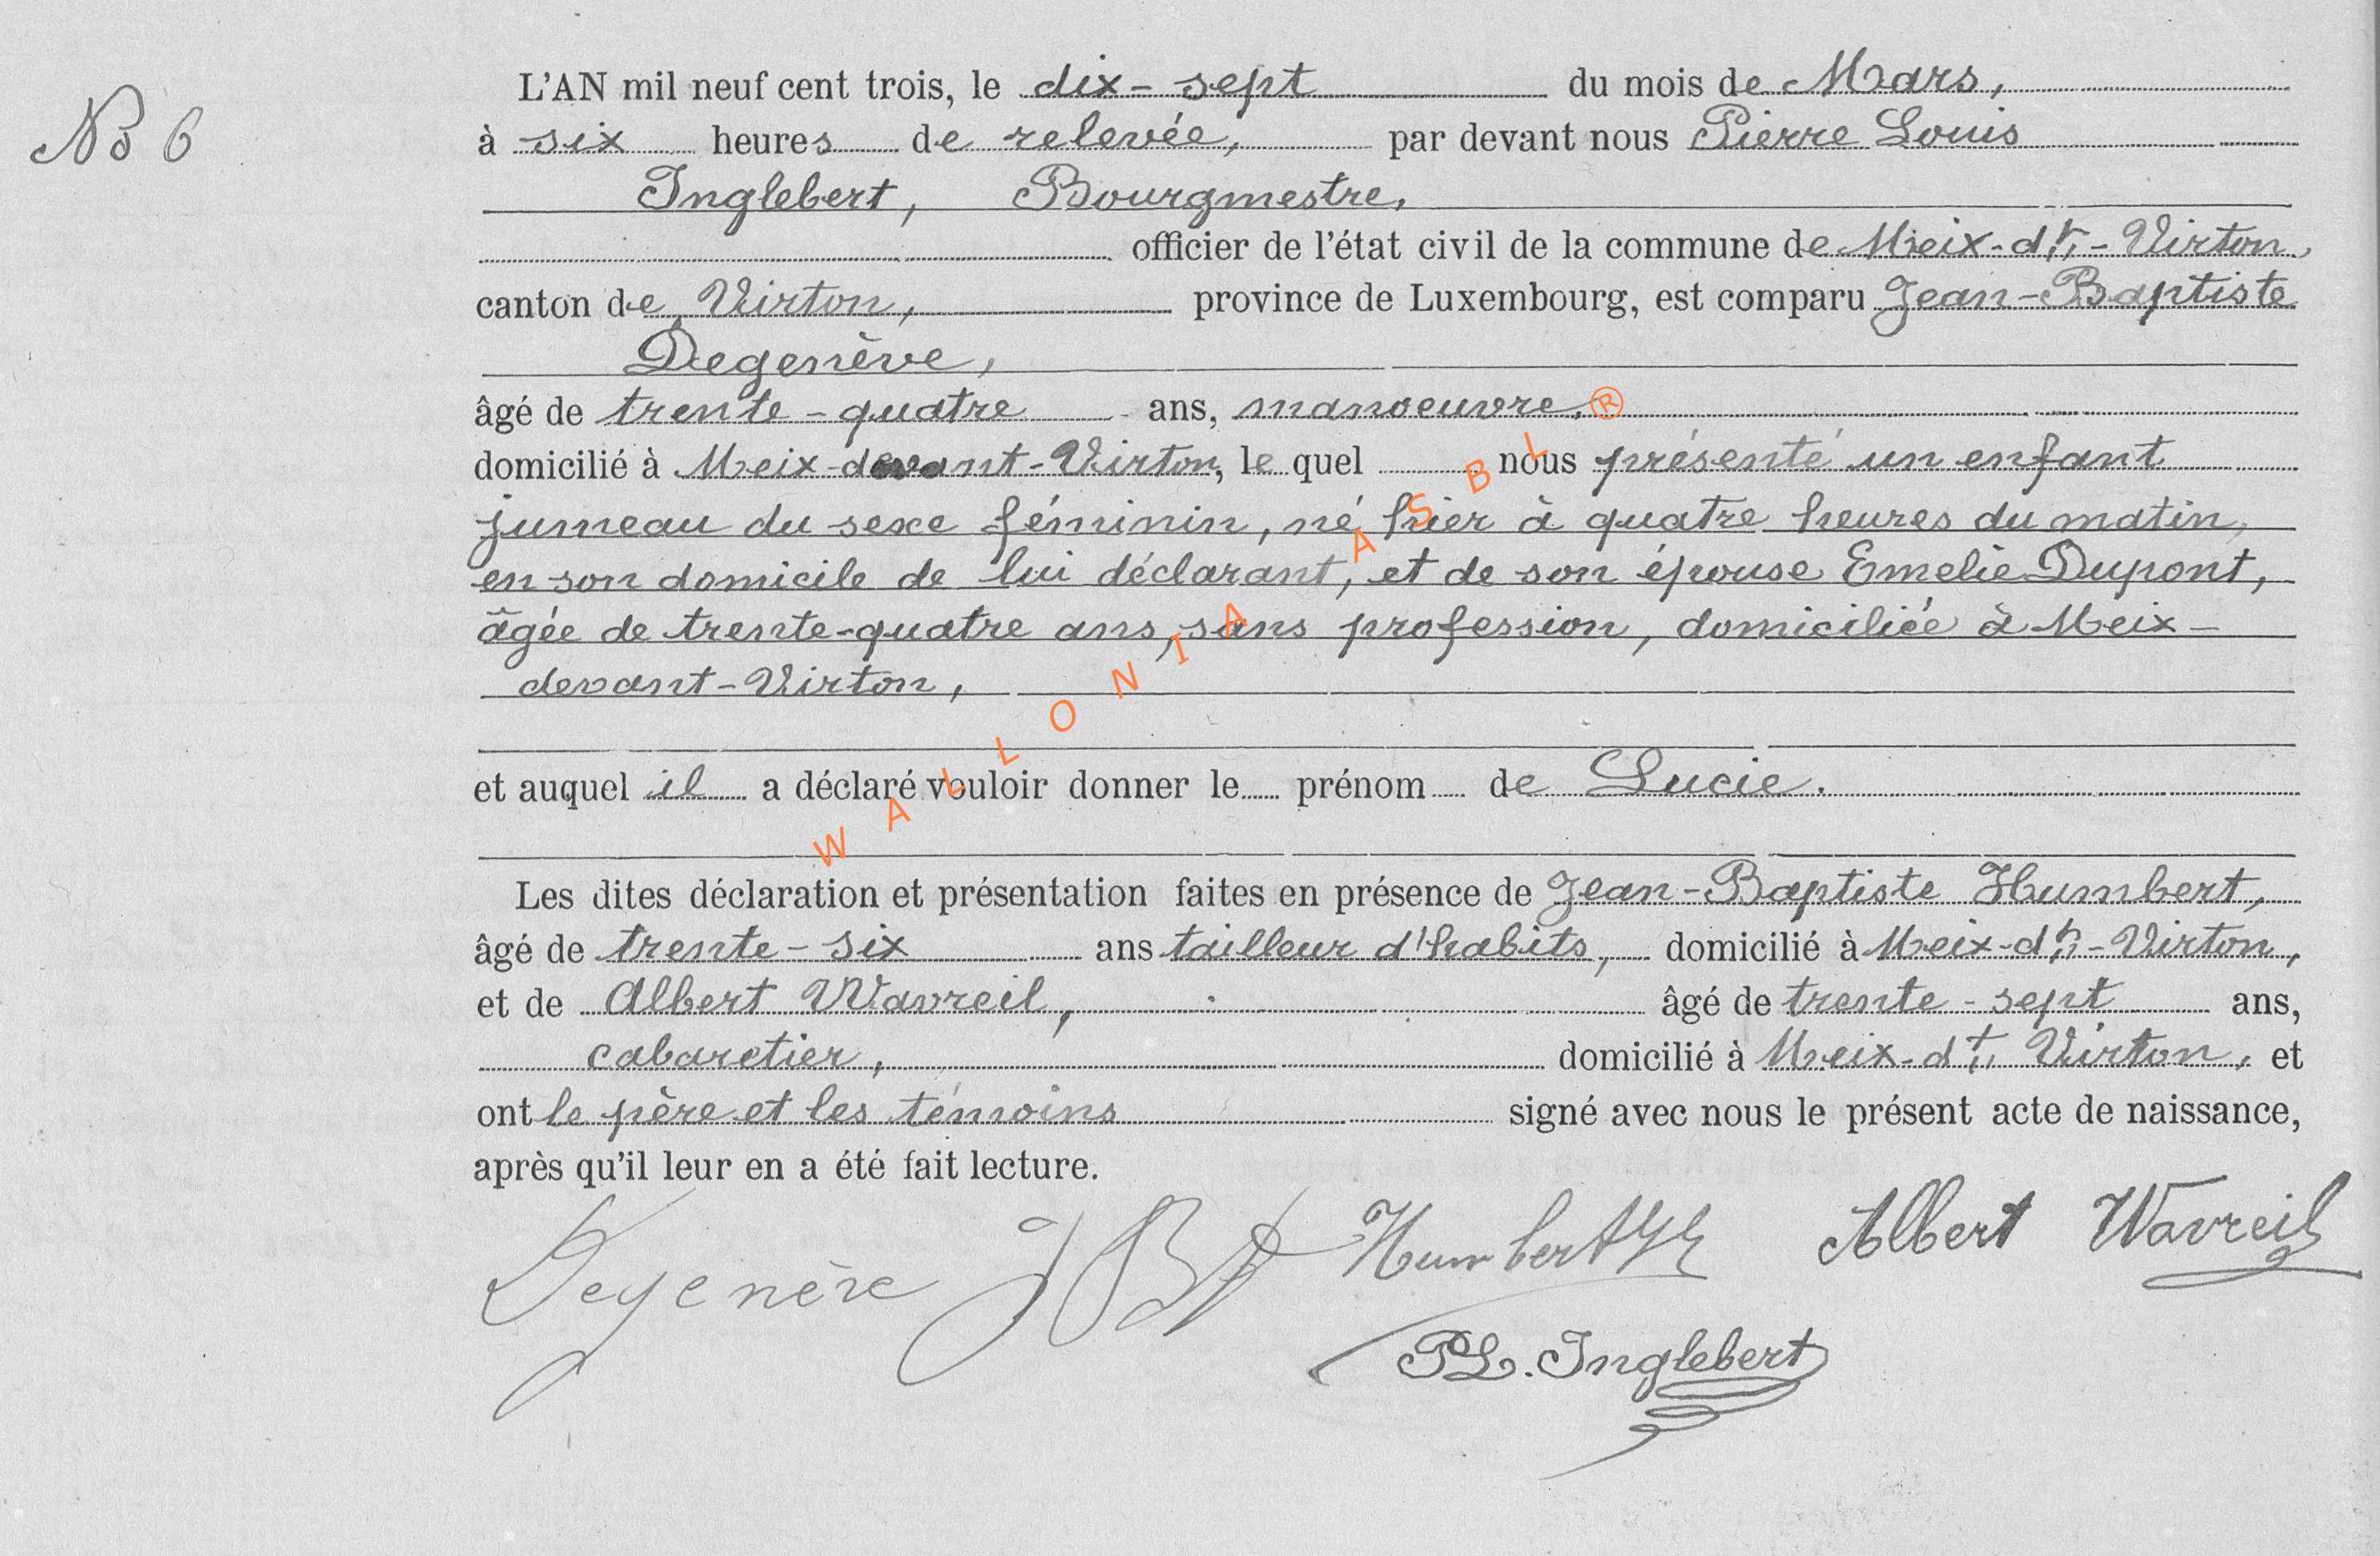 No 6
L'AN mil neuf cent trois, le dix-sept du mois de Mars,
à six heures de relevée, par devant nous Pierre Louis
Inglebert, Bourgmestre,
officier de l'état civil de la commune de Meix-dt-Virton
canton de Virton, province de Luxembourg, est comparu Jean-Baptiste
Degenève,
âgé de trente-quatre ans, manoeuvre,
domicilié à Meix-devant-Virton, le quel nous présenté un enfant
jumeau du sexe féminin, né hier à quatre heures du matin,
en son domicile de lui déclarant, et de son épouse Emelie Dupont,
âgée de trente-quatre ans, sans profession, domiciliée à Meix-
devant-Virton,
et auquel il a déclaré vouloir donner le prénom de Lucie.
Les dites déclaration et présentation faites en présence de Jean-Baptiste Humbert,
âgé de trente-six ans tailleur d'habits, domicilié à Meix-dt-Virton,
et de Albert Wavreil, âgé de trente-sept ans,
cabaretier, domicilié à Meix-dt Virton, et
ont le père et les témoins signé avec nous le présent acte de naissance,
après qu'il leur en a été fait lecture.
Degenère JBt Humbert Albert Wavreil
PL. Inglebert
WALLONIA ASBL ®